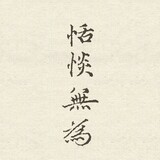 恬惔無為